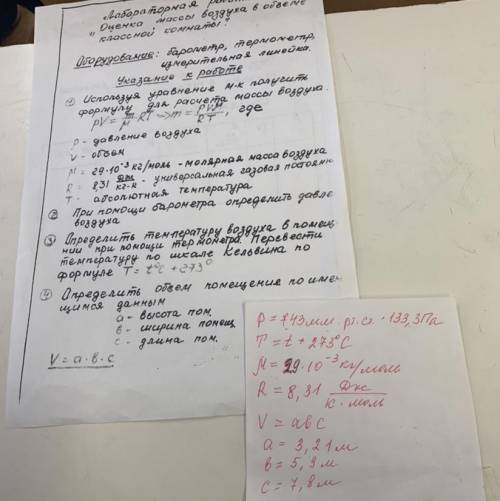 Лабораторная
"Оценка массы воздуха в объеме
классной комнаты."
Оборудование: барометр, термометр,
измерительная линейка.
Указание к работе
① Используя уравнение М-К получить
формулу для расчета массы воздуха.
PV = m/M · RT => m = PVM/RT, где
P - давление воздуха
V - объем
M = 29·10⁻³ кг/моль - молярная масса воздуха
R = 8,31 - универсальная газовая
T - абсолютная температура
② При помощи барометра определить
воздуха
③ Определить температуру воздуха в
при помощи термометра. Перевести
температуру по шкале Кельвина по
формуле T = t°C + 273°
④ Определить объем помещения по
щимся данным
a - высота пом.
в - ширина помещ.
c - длина пом.
V = a·в·c
P = 743 мм. рт. ст · 133,3 Па
T = t + 273°C
M = 29·10⁻³ кг/моль
R = 8,31 Дж/К·моль
V = aвc
a = 3,21 м
в = 5,9 м
c = 7,8 м